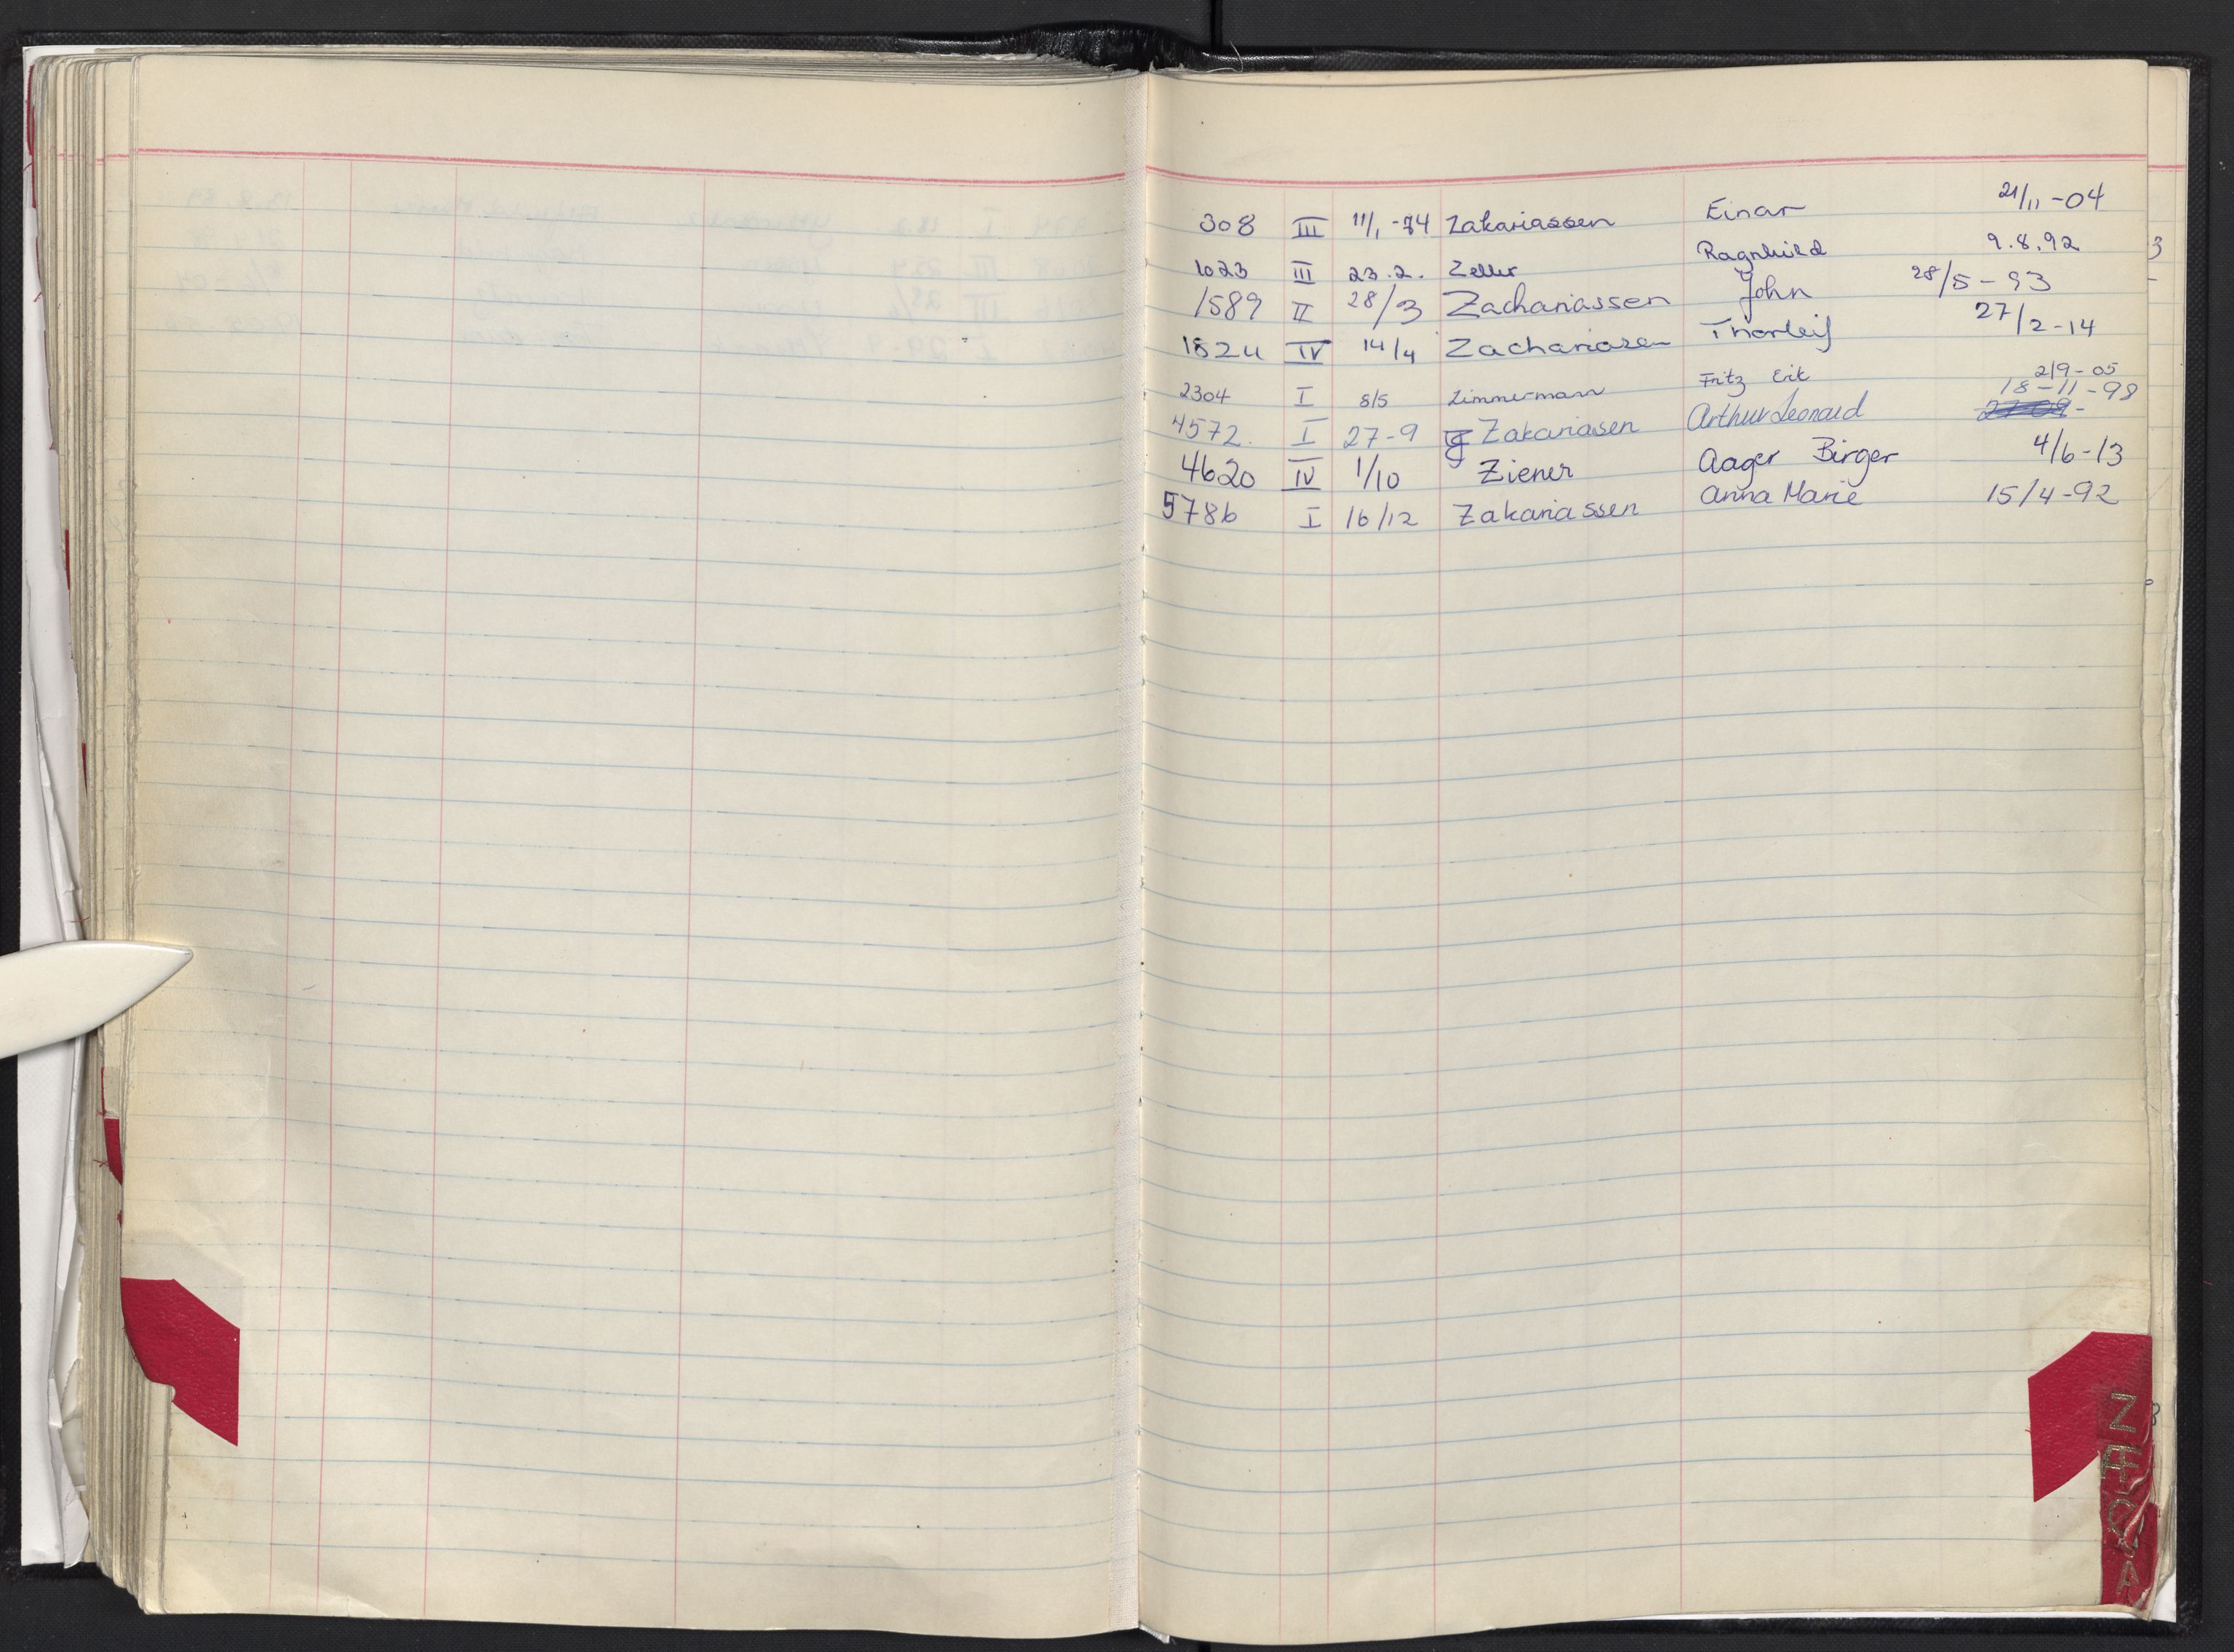 308 III 11/1 -74 Zakariassen Einar 21/11 -04
1023 III 23.2. Zeller Ragnhild 9.8.92
1589 II 28/3 Zachariassen John 28/5 - 93
1824 IV 14/4 Zachariasen Thorleif 27/2 -14
2304 I 8/5 Zimmermann Fritz Erik 2/9 - 05
4572. I 27-9 Zakariasen Arthur Leonard 18-11-98
4620 IV 1/10 Ziener Aager Birger 4/6-13
5786 I 16/12 Zakariassen Anna Marie 15/4-92
Z
Æ
Ø
Å